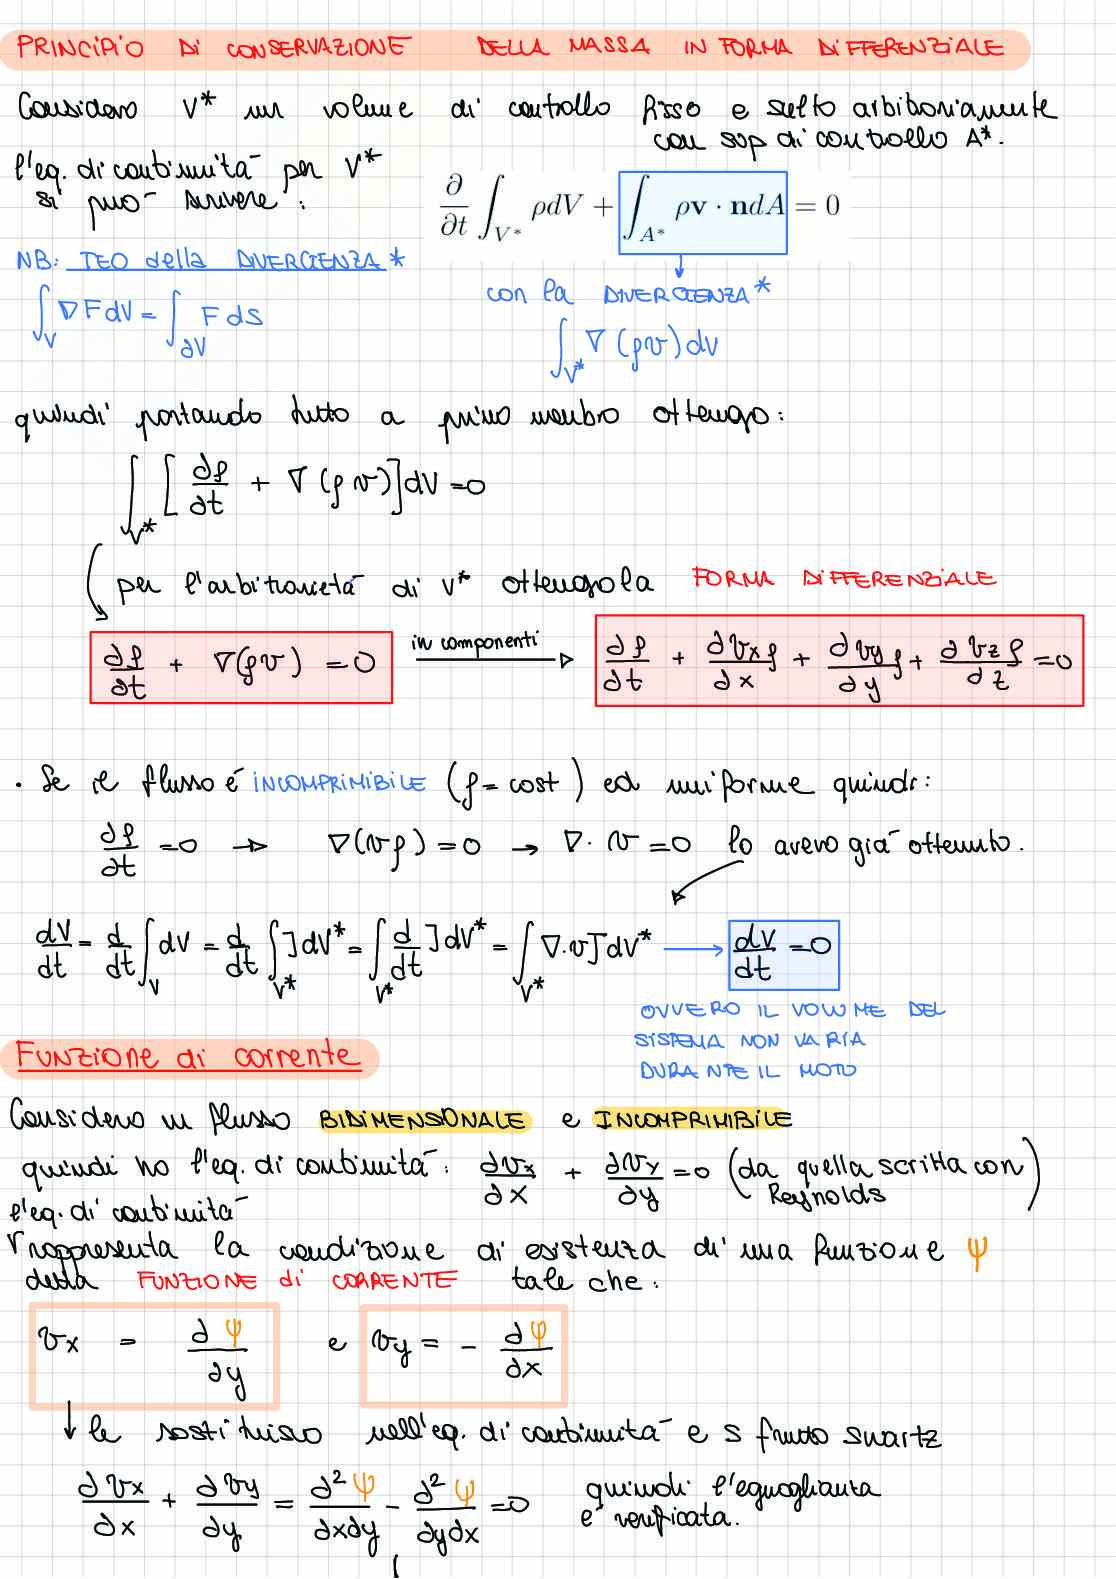 PRINCIPIO DI CONSERVAZIONE DELLA MASSA IN FORMA DIFFERENZIALE
Considero V* un volume di controllo fisso e scelto arbitrariamente
con sup di controllo A*.
l'eq. di continuità per V*
si può scrivere:
∂/∂t ∫_{V*} ρdV + ∫_{A*} ρv · ndA = 0
NB: TEO della DIVERGENZA*
∫_V ∇FdV = ∫_{∂V} F dS
con la DIVERGENZA*
∫_{V*} ∇(ρv)dV
quindi portando tutto a primo membro ottengo:
∫_{V*} [∂ρ/∂t + ∇(ρv)]dV = 0
per l'arbitrarietà di V* ottengo la FORMA DIFFERENZIALE
∂ρ/∂t + ∇(ρv) = 0 in componenti ∂ρ/∂t + ∂vxρ/∂x + ∂vyρ/∂y + ∂vzρ/∂z = 0
· Se il flusso é INCOMPRIMIBILE (ρ = cost) ed uniforme quindi:
∂ρ/∂t = 0 → ∇(vρ) = 0 → ∇· v = 0 lo avevo già ottenuto.
dV/dt = d/dt ∫_V dV = d/dt ∫_{V*} J dV* = ∫_{V*} d/dt J dV* = ∫_{V*} ∇·v J dV* → dV/dt = 0
OVVERO IL VOLUME DEL
SISTEMA NON VARIA
DURANTE IL MOTO
FUNZIONE di corrente
Considero un flusso BIDIMENSIONALE e INCOMPRIMIBILE
quindi ho l'eq. di continuità: ∂vx/∂x + ∂vy/∂y = 0 (da quella scritta con
Reynolds)
l'eq. di continuità
rappresenta la condizione di esistenza di una funzione ψ
detta FUNZIONE di CORRENTE tale che:
vx = ∂ψ/∂y e vy = - ∂ψ/∂x
↓ le sostituisco nell'eq. di continuità e sfrutto swartz
∂vx/∂x + ∂vy/∂y = ∂²ψ/∂x∂y - ∂²ψ/∂y∂x = 0 quindi l'eguaglianza
è verificata.